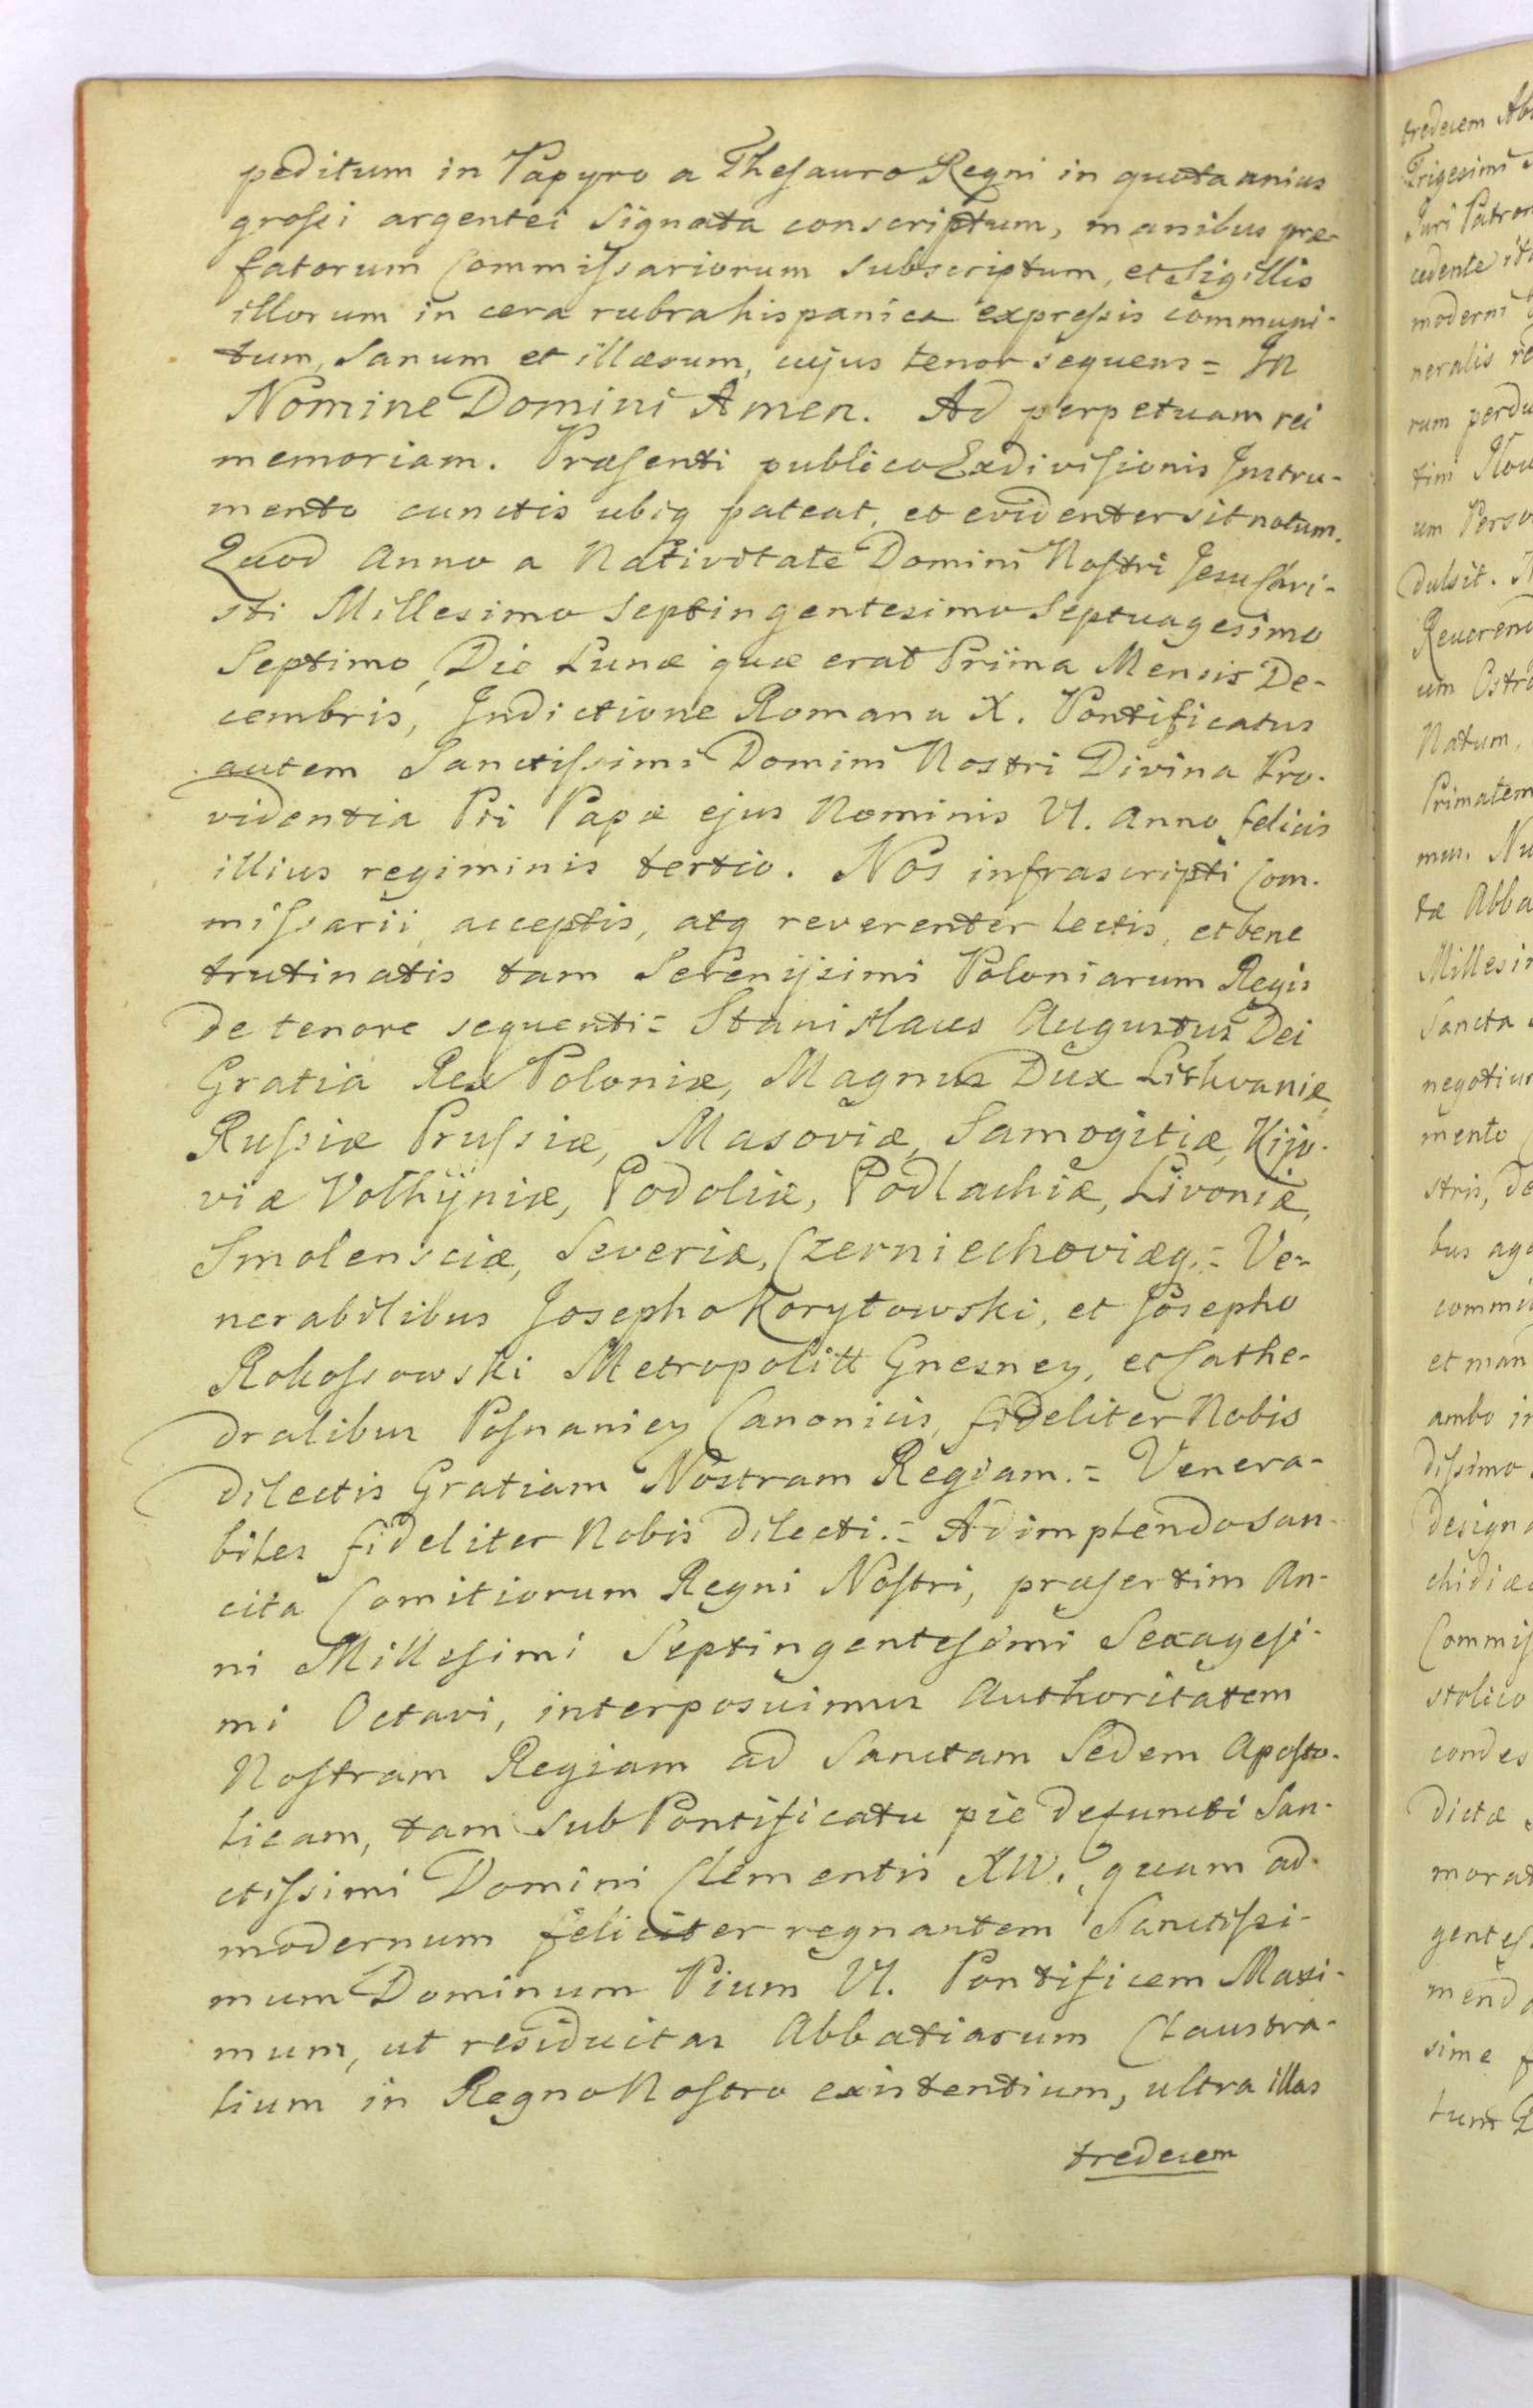 peditum in Papyro a Thesauro Regni in quota unius
grossi argentei signata conscriptum, manibus præ-
fatorum Commissariorum subscriptum, et Sigillis
illorum in cera rubra hispanica expressis communi-
tum, sanum et illæsum, cujus tenor sequens = In
Nomine Domini Amen. Ad perpetuam rei
memoriam. Præsenti publico Exdivisionis Instru-
mento cunctis ubiq pateat, et evidenter sit notum.
Quod Anno a Nativitate Domini Nostri Jesu Chri-
sti Millesimo Septingentesimo Septuagesimo
Septimo, Die Lunæ quæ erat Prima Mensis De-
cembris, Indictione Romana X. Pontificatus
autem Sanctissimi Domini Nostri Divina Pro-
videntia Pii Papæ ejus Nominis VI. Anno felicis
illius regiminis tertio. Nos infrascripti Com-
missarii, acceptis, atq reverenter Lectis, et bene
trutinatis tam Serenissimi Poloniarum Regis
de tenore sequenti = Stanislaus Augustus Dei
Gratia Rex Poloniæ, Magnus Dux Lithvaniæ,
Russiæ Prussiæ, Masoviæ, Samogitiæ, Kijo-
viæ Volhÿniæ, Podoliæ, Podlachiæ, Livoniæ,
Smolensciæ, Severiæ, Czerniechoviæq. = Ve-
nerabilibus Josepho Korytowski, et Josepho
Rokossowski Metropolitt Gnesney, et Cathe-
dralibus Posnaniey Canonicis, fideliter Nobis
dilectis Gratiam Nostram Regiam. = Venera-
biles fideliter Nobis dilecti. = Adimplendo san-
cita Comitiorum Regni Nostri, præsertim An-
ni Millesimi Septingentesimi Sexagesi-
mi Octavi, interposuimus Authoritatem
Nostram Regiam ad Sanctam Sedem Aposto-
licam, tam sub Pontificatu pie defuncti San-
ctissimi Domini Clementis XIV. quam ad
modernum feliciter regnantem Sanctissi-
mum Dominum Pium VI. Pontificem Maxi-
mum, ut residuitas Abbatiarum Claustra-
lium in Regno Nostro existentium, ultra illas
tredecem
tredecem
Trigesimi
Juri
cedente
moderni
neralis
rum
tim
um
dulsit.
um
Natum,
Primatem
mus.
tæ
Sancta
mento
stris, de
bus
et
ambo
dissimo
stolico
condes
dictæ
sime